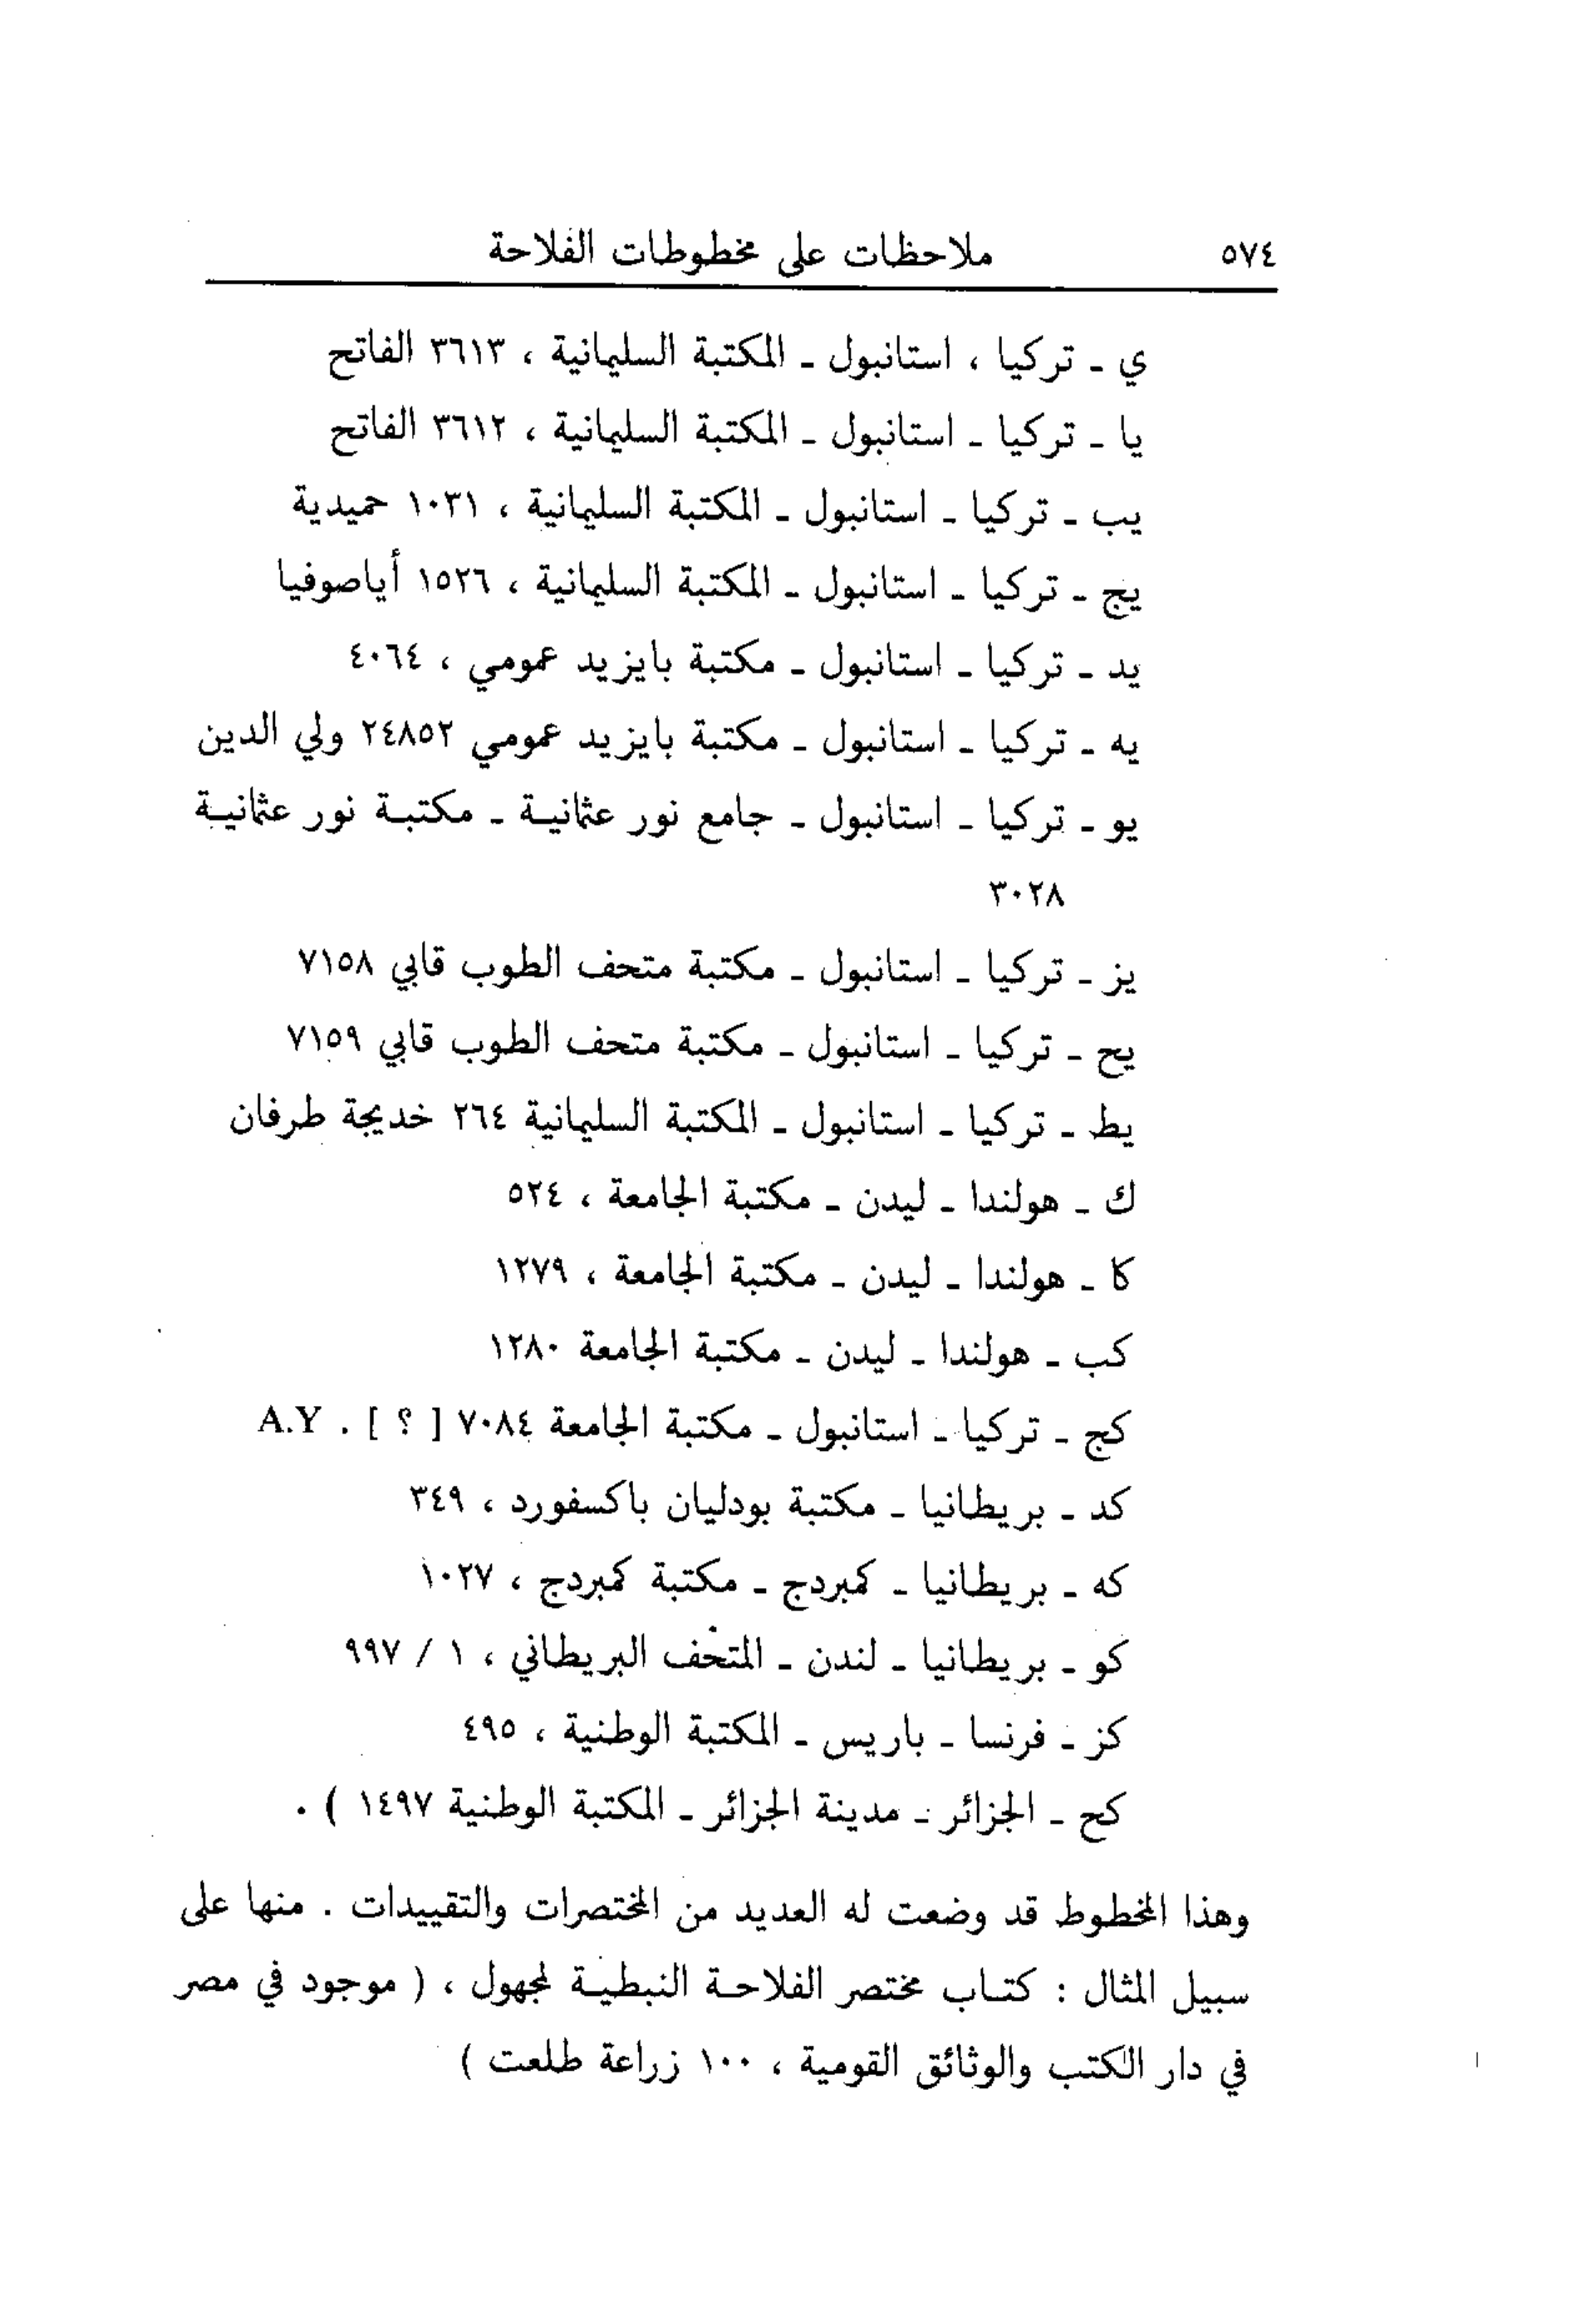 ٥٧٤ ملاحظات على مخطوطات الفلاحة
ي ـ تركيا ، استانبول ـ المكتبة السليمانية ، ٣٦١٣ الفاتح
يا ـ تركيا ـ استانبول ـ المكتبة السليمانية ، ٣٦١٢ الفاتح
يب ـ تركيا ـ استانبول ـ المكتبة السليمانية ، ١٠٣١ حميدية
يج ـ تركيا ـ استانبول ـ المكتبة السليمانية ، ١٥٢٦ أياصوفيا
يد ـ تركيا ـ استانبول ـ مكتبة بايزيد عمومي ، ٤٠٦٤
يه ـ تركيا ـ استانبول ـ مكتبة بايزيد عمومي ٢٤٨٥٢ ولي الدين
يو ـ تركيا ـ استانبول ـ جامع نور عثمانية ـ مكتبة نور عثمانية
٣٠٢٨
يز ـ تركيا ـ استانبول ـ مكتبة متحف الطوب قابي ٧١٥٨
يح ـ تركيا ـ استانبول ـ مكتبة متحف الطوب قابي ٧١٥٩
يط ـ تركيا ـ استانبول ـ المكتبة السليمانية ٢٦٤ خديجة طرفان
ك ـ هولندا ـ ليدن ـ مكتبة الجامعة ، ٥٢٤
كا ـ هولندا ـ ليدن ـ مكتبة الجامعة ، ١٢٧٩
كب ـ هولندا ـ ليدن ـ مكتبة الجامعة ١٢٨٠
كج ـ تركيا ـ استانبول ـ مكتبة الجامعة ٧٠٨٤ [ ؟ ] . A.Y
كد ـ بريطانيا ـ مكتبة بودليان باكسفورد ، ٣٤٩
كه ـ بريطانيا ـ كمبردج ـ مكتبة كمبردج ، ١٠٢٧
كو ـ بريطانيا ـ لندن ـ المتحف البريطاني ، ١ / ٩٩٧
كز ـ فرنسا ـ باريس ـ المكتبة الوطنية ، ٤٩٥
كح ـ الجزائر ـ مدينة الجزائر ـ المكتبة الوطنية ١٤٩٧ ) .
وهذا المخطوط قد وضعت له العديد من المختصرات والتقييدات . منها على
سبيل المثال : كتاب مختصر الفلاحة النبطية لمجهول ، ( موجود في مصر
في دار الكتب والوثائق القومية ، ١٠٠ زراعة طلعت )